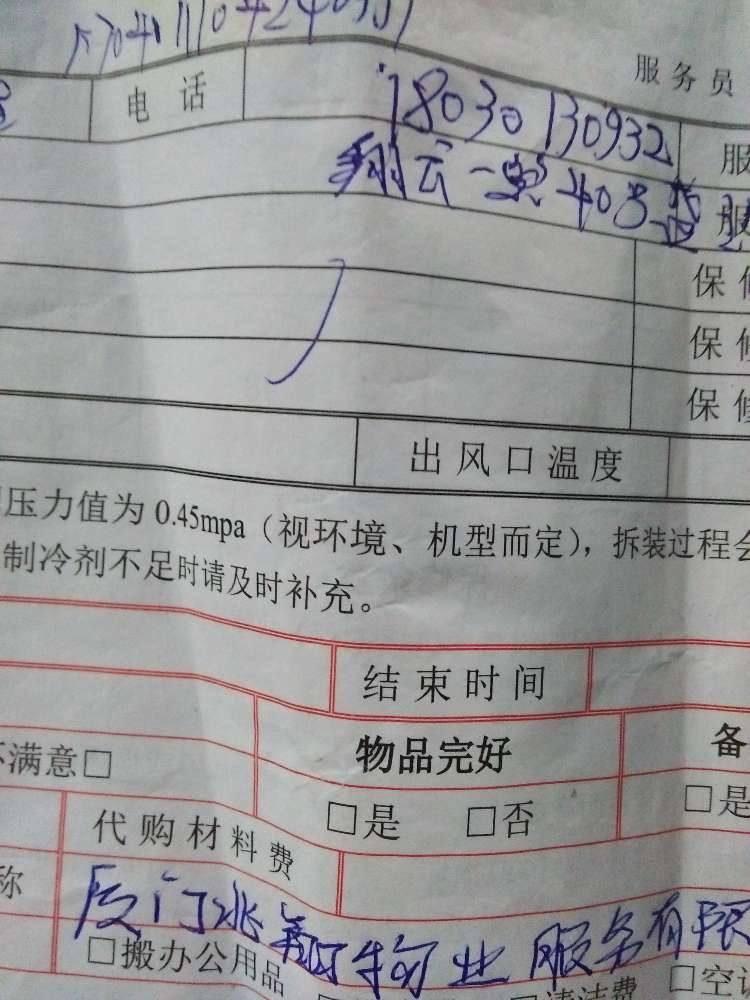 服务员
电话 18030130932 服
翔云一里408 服
保修
保修
保修
出风口温度
压力值为 0.45mpa（视环境、机型而定），拆装过程会
制冷剂不足时请及时补充。
结束时间
不满意□ 物品完好 备
□是 □否 □是
代购材料费
称
厦门兆翔物业服务有限
□搬办公用品 清洁费 □空调